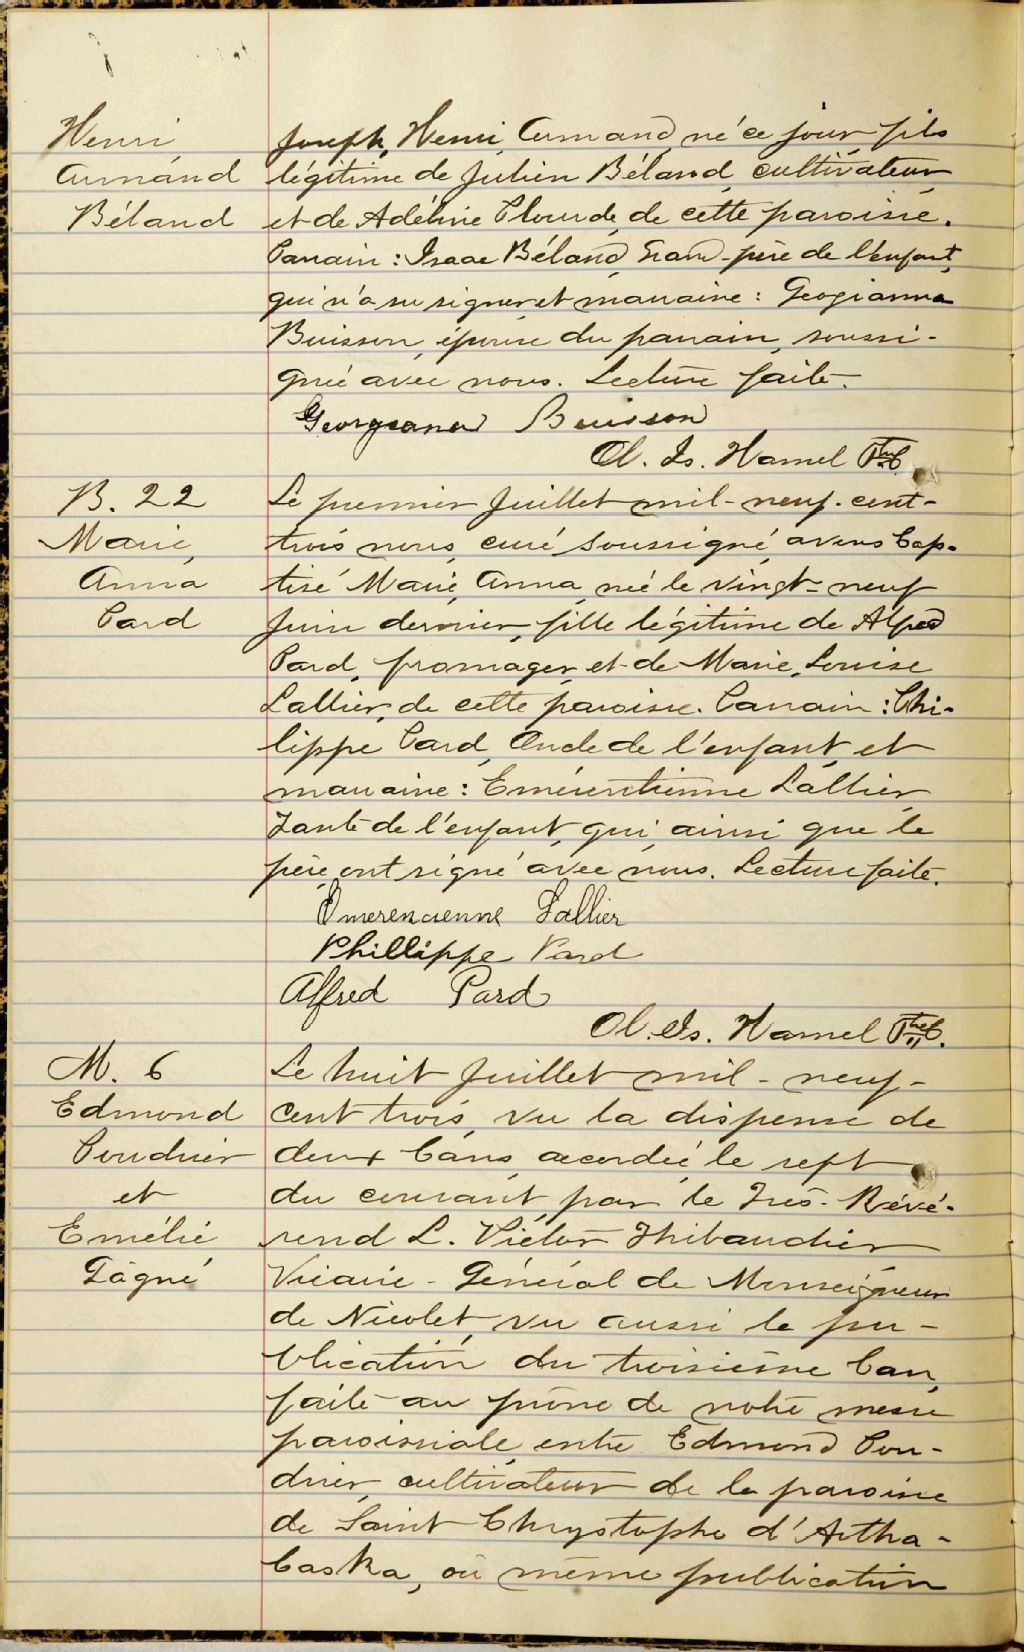 Henri
Armand
Béland
Joseph, Henri, Armand, né ce jour, fils
légitime de Julien Béland, cultivateur
et de Adéline Plourde, de cette paroisse.
Parrain : Isaac Béland, Grand-père de l'enfant,
qui n'a su signer et marraine : Geogianna
Buisson, épouse du parrain, soussi-
gnée avec nous. Lecture faite.
Georgeana Buisson
Ol. Is. Hamel Ptre C.
B. 22
Marie,
Anna
Pard
Le premier Juillet mil-neuf-cent-
trois nous, curé soussigné, avons bap-
tisé Marie, Anna, née le vingt-neuf
Juin dernier, fille légitime de Alfred
Pard, fromager, et de Marie, Louise
Lallier, de cette paroisse. Parrain : Phi-
lippe Pard, Oncle de l'enfant, et
marraine : Emérentienne Lallier,
Tante de l'enfant, qui ainsi que le
père ont signé avec nous. Lecture faite.
Emerencienne Lallier
Phillippe Pard
Alfred Pard
Ol. Is. Hamel Ptre C.
M. 6
Edmond
Poudrier
et
Emélie
Gâgné
Le huit Juillet mil-neuf-
cent trois, vu la dispense de
deux bans, accordée le sept
du courant, par le Très-Révé-
rend L. Victor Thibaudier
Vicaire-Général de Monseigneur
de Nicolet, vu aussi la pu-
blication du troisième ban,
faite au prône de notre messe
paroissiale, entre Edmond Pou-
drier, cultivateur de la paroisse
de Saint Chrystophe d'Artha-
baska, où même publication